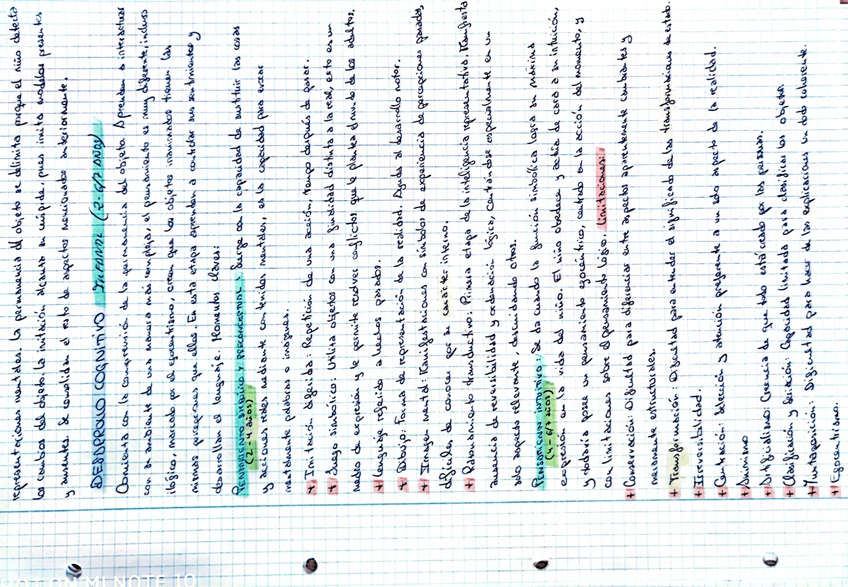 representaciones mentales. La permanencia del objeto se delimita porque el niño detecta
los cambios del objeto. La imitación alcanza su cúspide, pues imita modelos presentes
y ausentes. Se consolidan el resto de aspectos mencionados anteriormente.
DESARROLLO COGNITIVO INFANTIL (2-6/7 AÑOS)
Comienza con la comprensión de la permanencia del objeto. Aprenden a interactuar
con su ambiente de una manera más compleja, el pensamiento es muy diferente, incluso
ilógico, marcado por el egocentrismo, creen que los objetos inanimados tienen las
mismas percepciones que ellos. En esta etapa aprenden a controlar sus sentimientos y
desarrollan el lenguaje. Momentos claves:
PENSAMIENTO SIMBÓLICO Y PRECONCEPTUAL: Surge con la capacidad de sustituir las cosas
(2-4 años)
y acciones reales mediante contenidos mentales, es la capacidad para evocar
mentalmente palabras o imágenes.
+ Imitación diferida: Repetición de una acción, tiempo después de pasar.
+ Juego simbólico: Utiliza objetos con una finalidad distinta a la real, esto es un
medio de expresión y le permite resolver conflictos que le plantea el mundo de los adultos.
+ Lenguaje referido a hechos pasados.
+ Dibujo: Forma de representación de la realidad. Ayuda al desarrollo motor.
+ Imagen mental: Manifestaciones con símbolos de experiencia de percepciones pasadas,
difíciles de conocer por su carácter interno.
+ Razonamiento transductivo: Primera etapa de la inteligencia representativa. Manifiesta
ausencia de reversibilidad y ordenación lógica, centrándose especialmente en un
solo aspecto relevante, descuidando otros.
PENSAMIENTO INTUITIVO: Se da cuando la función simbólica logra su máxima
(4-6/7 años)
expresión en la vida del niño. El niño obedece y actúa de cara a su intuición,
y todavía posee un pensamiento egocéntrico, centrado en la acción del momento, y
con limitaciones sobre el pensamiento lógico. Limitaciones:
+ Conservación: Dificultad para diferenciar entre aspectos aparentemente cambiantes y
meramente estructurales.
+ Transformación: Dificultad para entender el significado de las transformaciones de estado.
+ Irreversibilidad.
+ Centración: Selección y atención preferente a un solo aspecto de la realidad.
+ Animismo
+ Artificialismo: Creencia de que todo está creado por las personas.
+ Clasificación y seriación: Capacidad limitada para clasificar los objetos.
+ Yuxtaposición: Dificultad para hacer de las explicaciones un todo coherente.
+ Egocentrismo.
CON MI NOTE 10